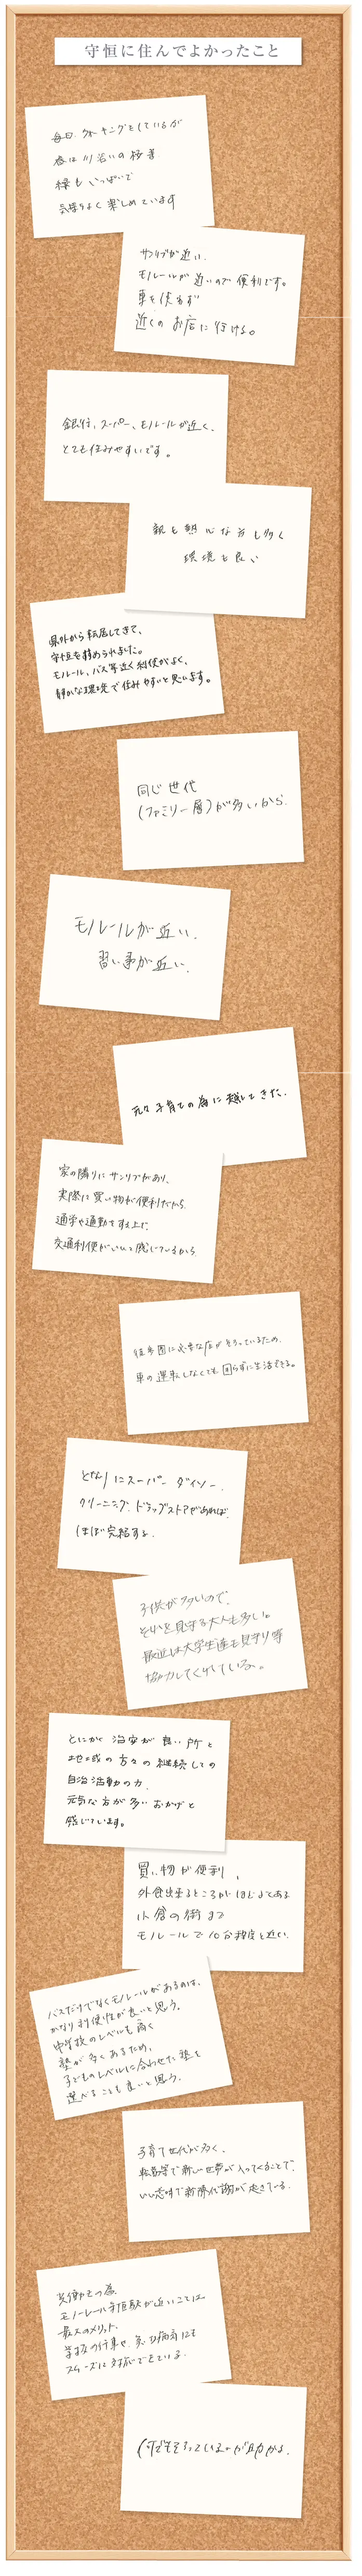 守恒に住んでよかったこと
毎日ウォーキングをしているが
春は川沿いの桜並
緑もいっぱいで
気持ちよく楽しめています
サンリブが近い.
モノレールが近いので便利です。
車を使わず
近くのお店に行ける。
銀行、スーパー、モノレールが近く、
とても住みやすいです。
親も熱心な方も多く
環境も良い
県外から転居してきて、
守恒を勧められました。
モノレール、バス等近く利便がよく、
静かな環境で住みやすいと思います。
同じ世代
(ファミリー層)が多いから.
モノレールが近い.
習い事が近い.
元々子育ての為に越してきた.
家の隣りにサンリブがあり、
実際に買い物が便利だから.
通学や通勤をする上で.
交通利便がいいと感じているから
徒歩圏に必要な店がそろっているため、
車の運転しなくても困らずに生活できる。
となりにスーパー ダイソー.
クリーニング.ドラッグストアがあれば.
ほぼ完結する.
子供が多いので.
それを見守る大人も多い。
最近は大学生達も見守り等
協力してくれている。
とにかく治安が良い所と
地域の方々の継続しての
自治活動の力.
元気な方が多いおかげと
感じています。
買い物が便利、
外食出来るところがほどほどある
小倉の街まで
モノレールで10分程度と近い.
バスだけでなくモノレールがあるのは、
かなり利便性が良いと思う。
中学校のレベルも高く
塾が多くあるため、
子どものレベルに合わせた塾を
選べることも良いと思う。
子育て世代が多く、
転勤等で新しい世帯が入ってくることで、
いい意味で新陳代謝が起きている.
共働きの為.
モノレール守恒駅が近いことは
最大のメリット.
学校の行事や、急な病気にも
スムーズに対応できている.
何でもそろっているのが助かる.